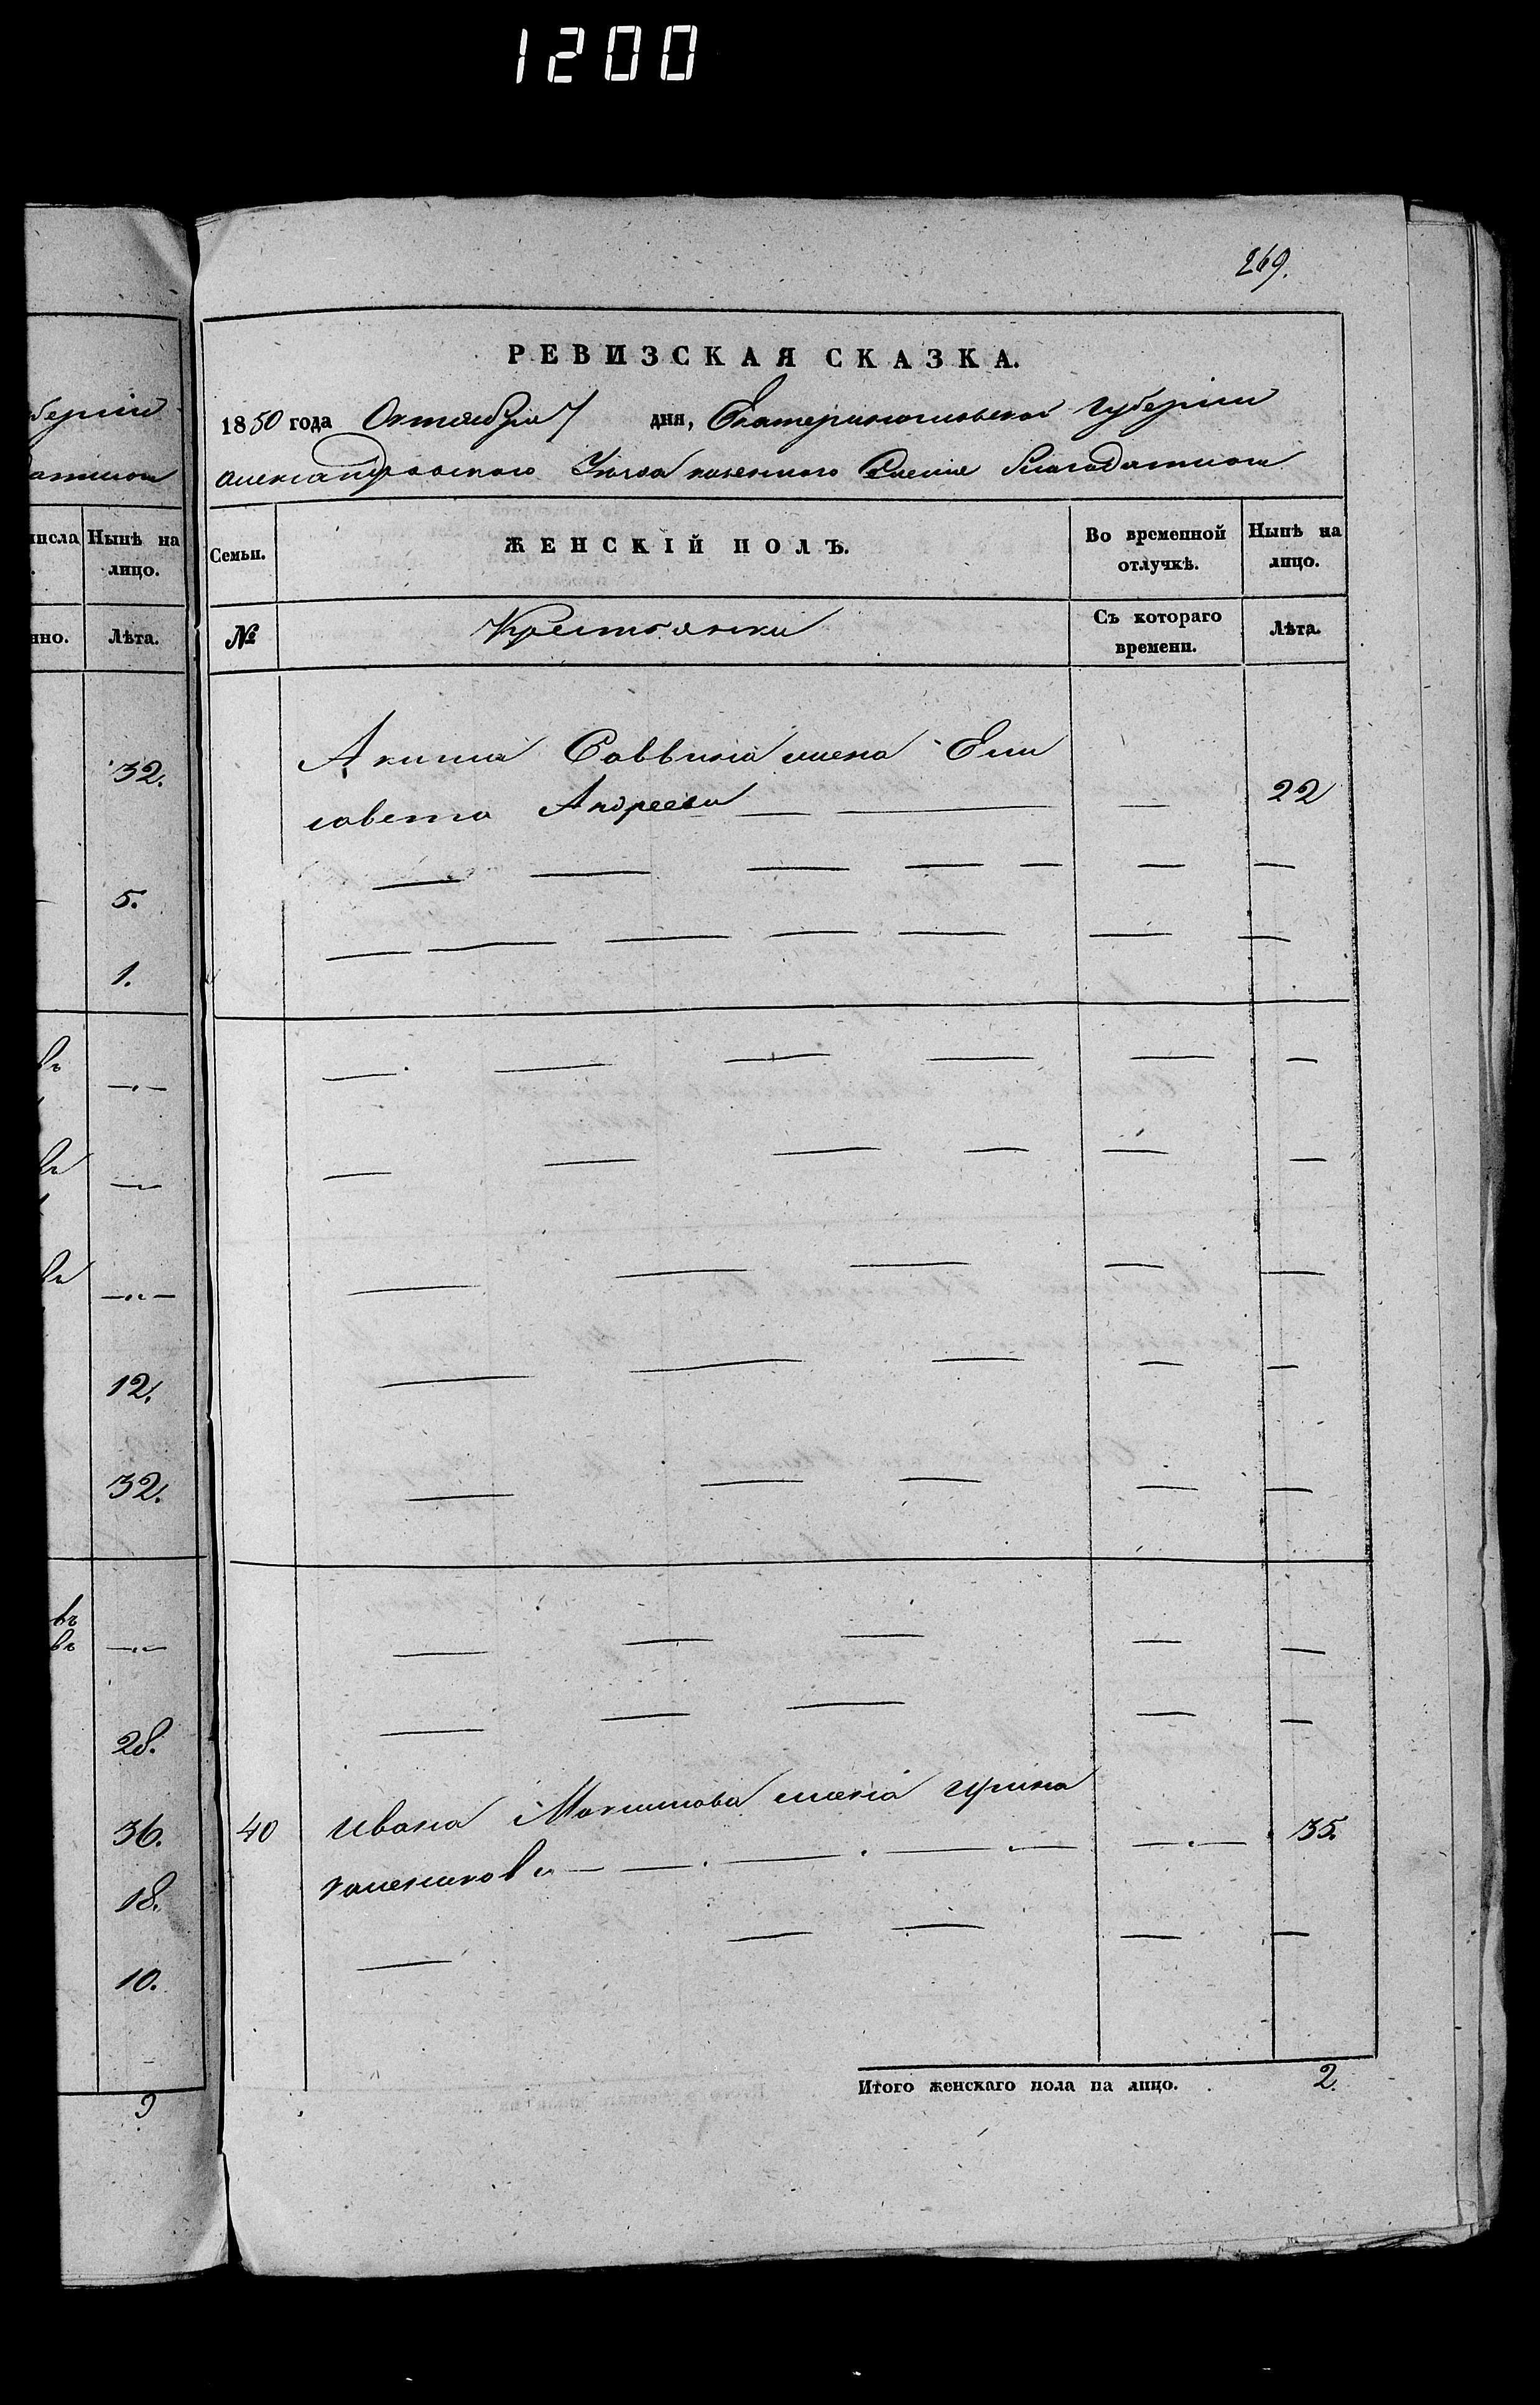 1200
269.
РЕВИЗСКАЯ СКАЗКА.
1850 года Октября 7 дня, Екатеринославской губернiи
Александровскаго Уѣзда казеннаго Селенiя Благодатнаго
Семьи.
ЖЕНСКІЙ ПОЛЪ.
Во временной отлучкѣ.
Нынѣ на лицо.
№
Крестьянки
Съ котораго времени.
Лѣта.
Акима Саввина жена Ели
савета Андреева 22
40 Ивана Максимова жена Ирина 35.
Итого женскаго пола на лицо. 2.
берніи
числа
Нынѣ на лицо.
нно.
Лѣта.
32.
5.
1.
въ
12.
32.
въ
въ
28.
36.
18.
10.
9